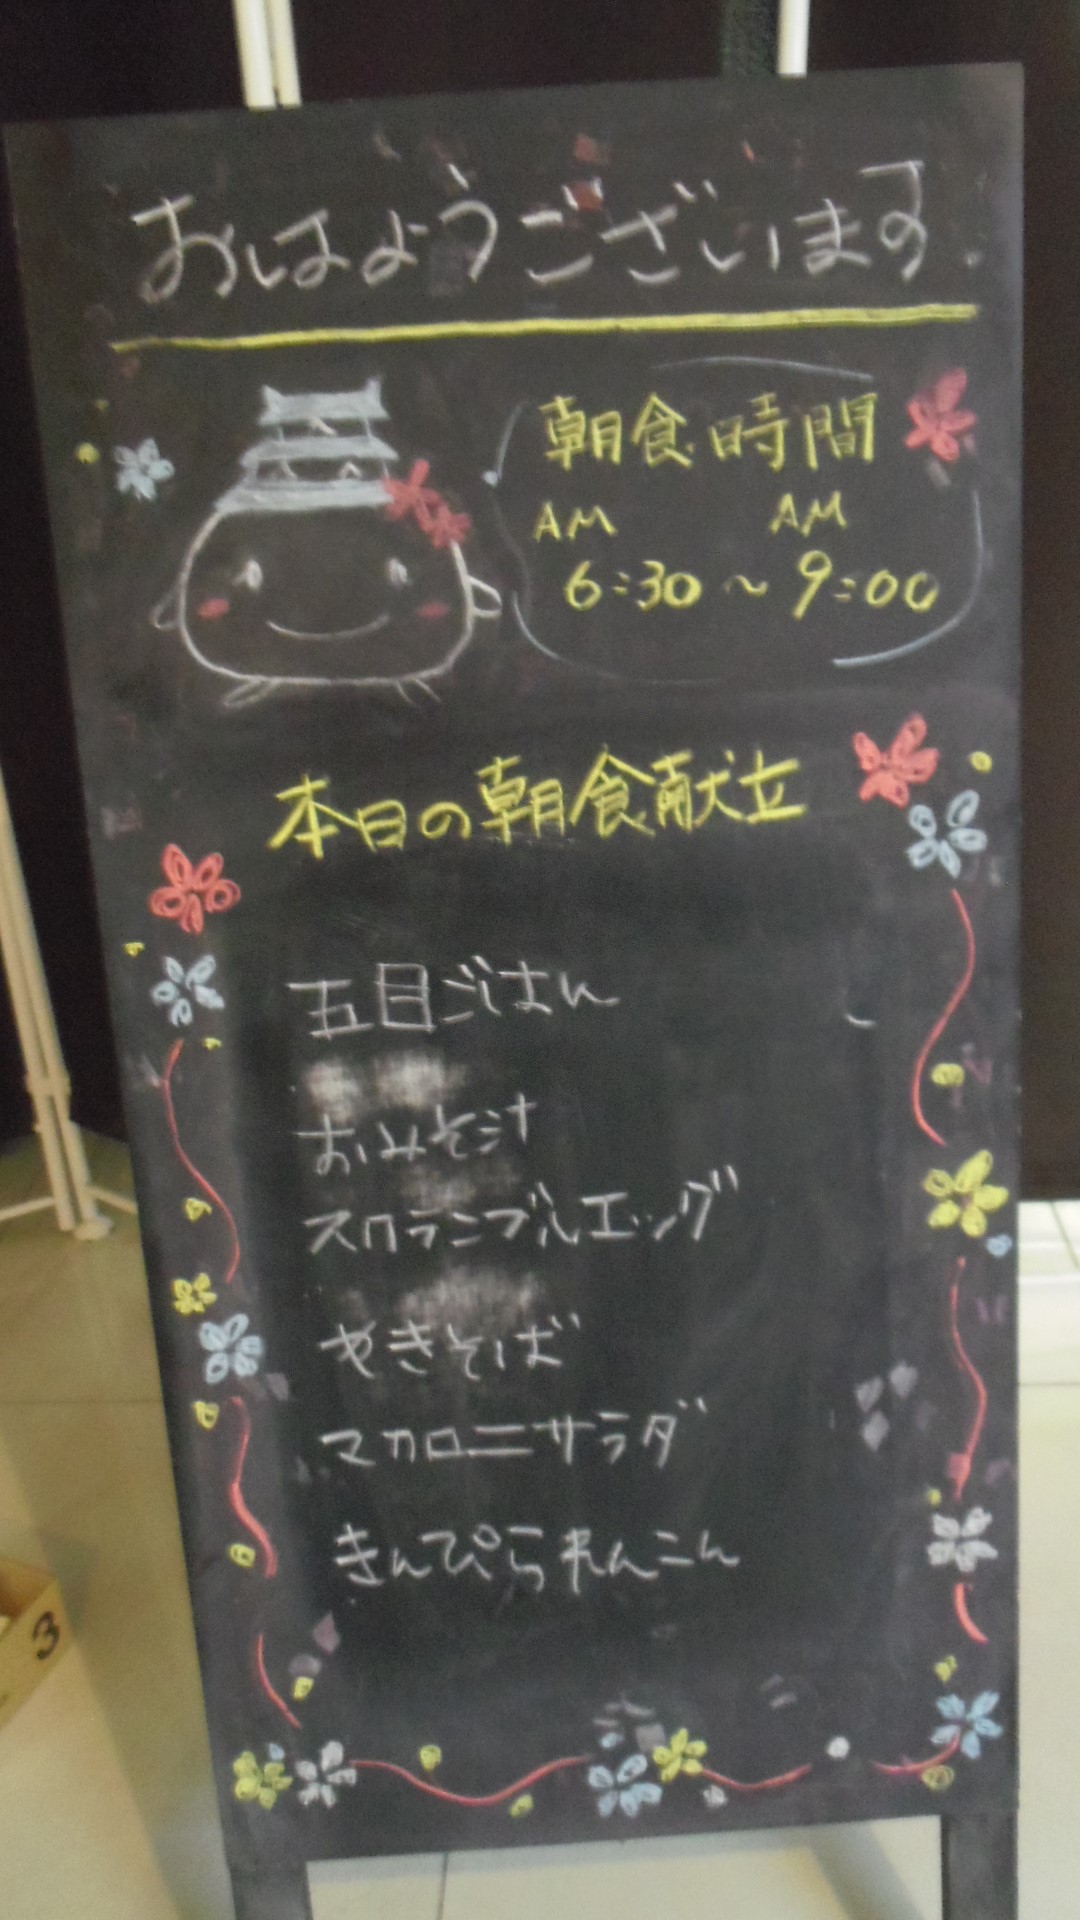 おはようございます
朝食時間
AM AM
6:30~9:00
本日の朝食献立
五目ごはん
おみそ汁
スクランブルエッグ
やきそば
マカロニサラダ
きんぴられんこん
3